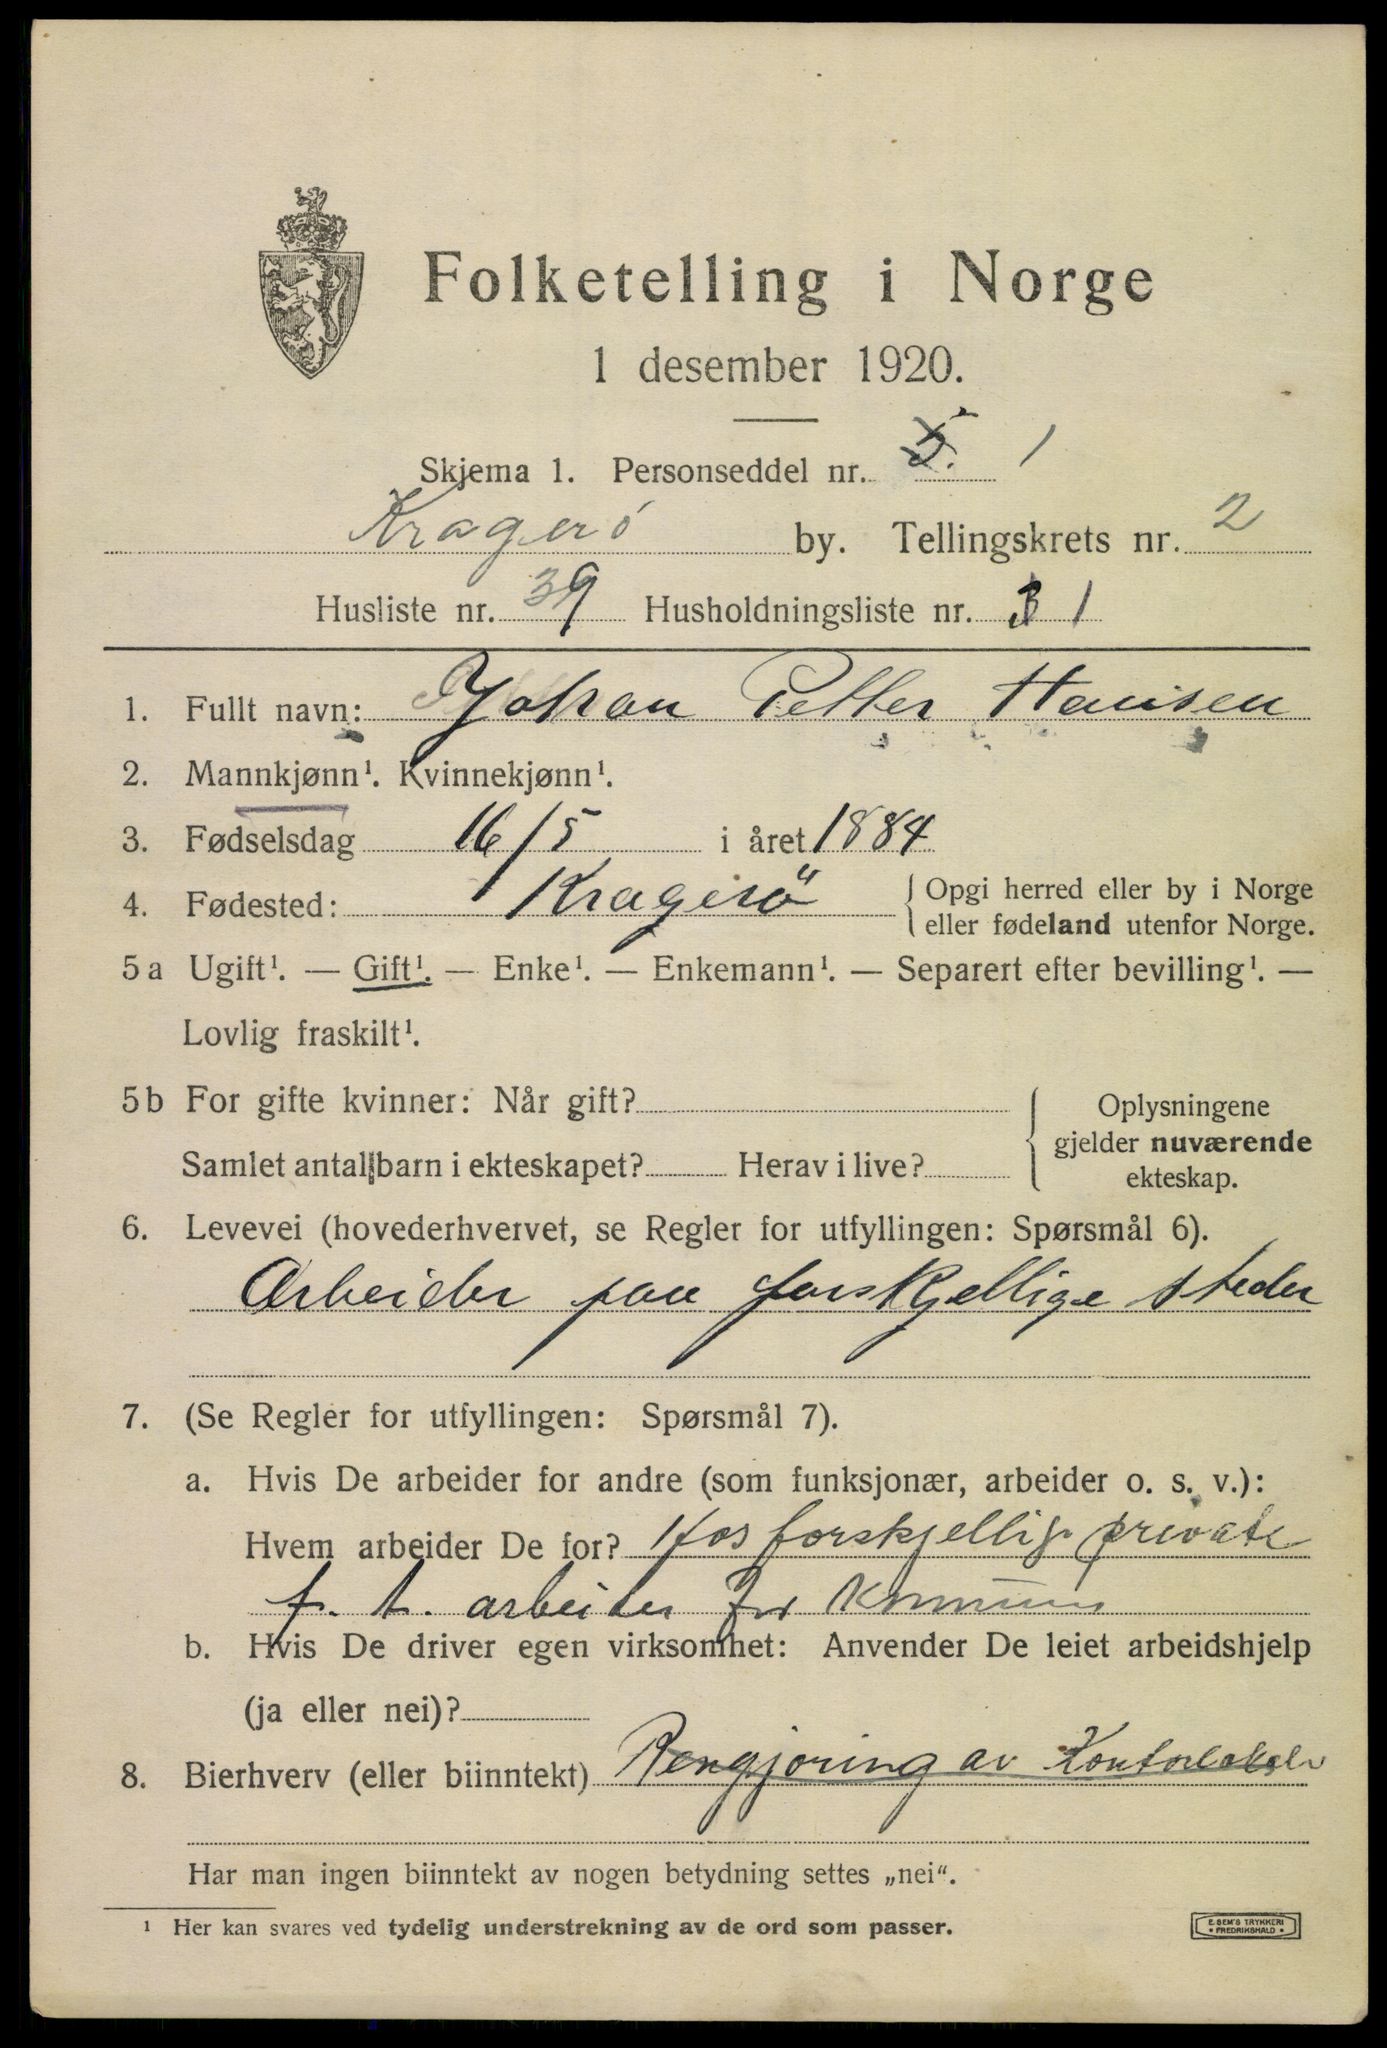 Folketelling i Norge
1 desember 1920.
Skjema 1. Personseddel nr. 5. 1
Kragerö by. Tellingskrets nr. 2
Husliste nr. 39 Husholdningsliste nr. 3 1
1. Fullt navn: Johan Petter Hansen
2. Mannkjønn¹. Kvinnekjønn¹.
3. Fødselsdag 16/5 i året 1884
4. Fødested: Kragerö { Opgi herred eller by i Norge
eller fødeland utenfor Norge.
5a Ugift¹. — Gift¹. — Enke¹. — Enkemann¹. — Separert efter bevilling¹. —
Lovlig fraskilt¹.
5b For gifte kvinner: Når gift? { Oplysningene
gjelder nuværende
Samlet antal barn i ekteskapet? Herav i live?
ekteskap.
6. Levevei (hovederhvervet, se Regler for utfyllingen: Spørsmål 6).
Arbeider paa forskjellige steder
7. (Se Regler for utfyllingen: Spørsmål 7).
a. Hvis De arbeider for andre (som funksjonær, arbeider o. s. v.):
Hvem arbeider De for? Hos forskjellig private
f. t. arbeider for
b. Hvis De driver egen virksomhet: Anvender De leiet arbeidshjelp
(ja eller nei)?
8. Bierhverv (eller biinntekt) Rengjøring av
Har man ingen biinntekt av nogen betydning settes „nei“.
¹ Her kan svares ved tydelig understrekning av de ord som passer.
E. SEM'S TRYKKERI
• FREDRIKSHALD •